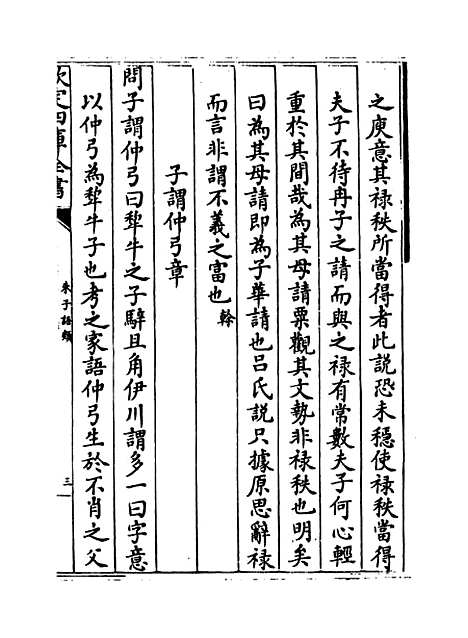 之庾意其禄秩所當得者此説恐未穩使禄秩當得
夫子不待冉子之請而與之禄有常數夫子何心輕
重於其間哉為其母請粟觀其文勢非禄秩也明矣
曰為其母請即為子華請也吕氏説只據原思辭禄
而言非謂不義之富也榦
子謂仲弓章
問子謂仲弓曰犂牛之子騂且角伊川謂多一曰字意
以仲弓為犂牛子也考之家語仲弓生於不肖之父
欽定四庫全書
朱子語類
三